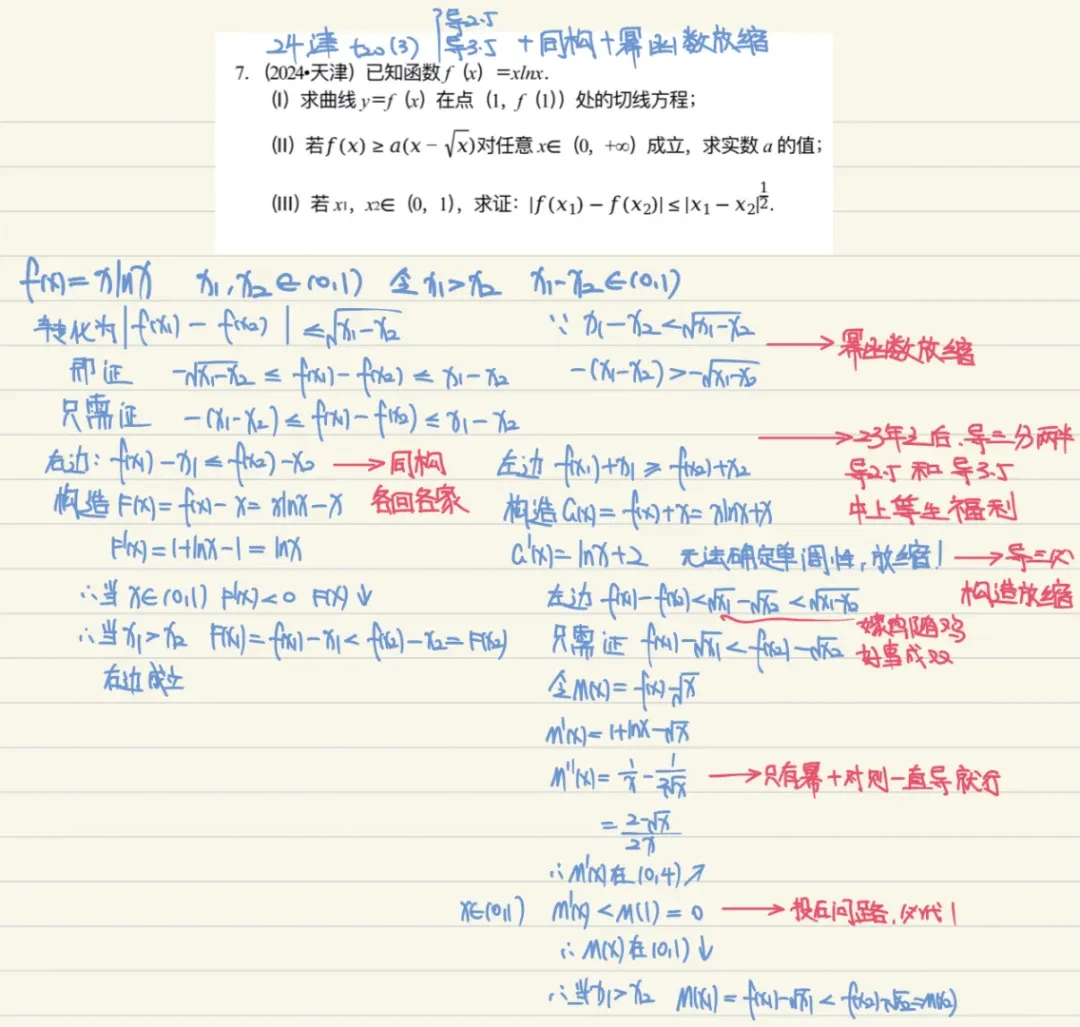 24津 t20(3) 导2.5
导3.5 +同构+幂函数放缩
7. (2024•天津) 已知函数 f (x) =xlnx.
(I) 求曲线 y=f (x) 在点 (1, f (1)) 处的切线方程;
(II) 若 f(x) ≥ a(x − √x)对任意 x∈ (0, +∞) 成立, 求实数 a 的值;
(III) 若 x₁, x₂∈ (0, 1), 求证: |f(x₁) − f(x₂)| ≤ |x₁ − x₂|^(1/2).
f(x)=xlnx x₁,x₂∈(0,1) 令x₁>x₂ x₁-x₂∈(0,1)
转化为|f(x₁)-f(x₂)|≤√(x₁-x₂)
即证 -√(x₁-x₂)≤f(x₁)-f(x₂)≤x₁-x₂
只需证 -(x₁-x₂)≤f(x₁)-f(x₂)≤x₁-x₂
∵x₁-x₂<√(x₁-x₂)
-(x₁-x₂)>-√(x₁-x₂)
→幂函数放缩
右边:f(x₁)-x₁≤f(x₂)-x₂ →同构
各回各家
构造F(x)=f(x)-x=xlnx-x
F'(x)=1+lnx-1=lnx
∴当x∈(0,1) F'(x)<0 F(x)↓
∴当x₁>x₂ F(x₁)=f(x₁)-x₁<f(x₂)-x₂=F(x₂)
右边成立
→23年之后,导三分两半
导2.5和导3.5
中上等生福利
左边 f(x₁)+x₁≥f(x₂)+x₂
构造G(x)=f(x)+x=xlnx+x
G'(x)=lnx+2 无法确定单调性,放缩! →导三
构造放缩
左边 f(x₁)-f(x₂)<√x₁-√x₂<√(x₁-x₂)
嫁鸡随鸡
好事成双
只需证 f(x₁)-√x₁<f(x₂)-√x₂
令M(x)=f(x)-√x
M'(x)=1+lnx-√x
M''(x)=1/x-1/(2√x) →只有幂+对则一直导就行
=(2-√x)/(2x)
∴M'(x)在(0,4)↗
x∈(0,1) M'(x)<M(1)=0 →投石问路,仅代1
∴M(x)在(0,1)↓
∴当x₁>x₂ M(x₁)=f(x₁)-√x₁<f(x₂)-√x₂=M(x₂)